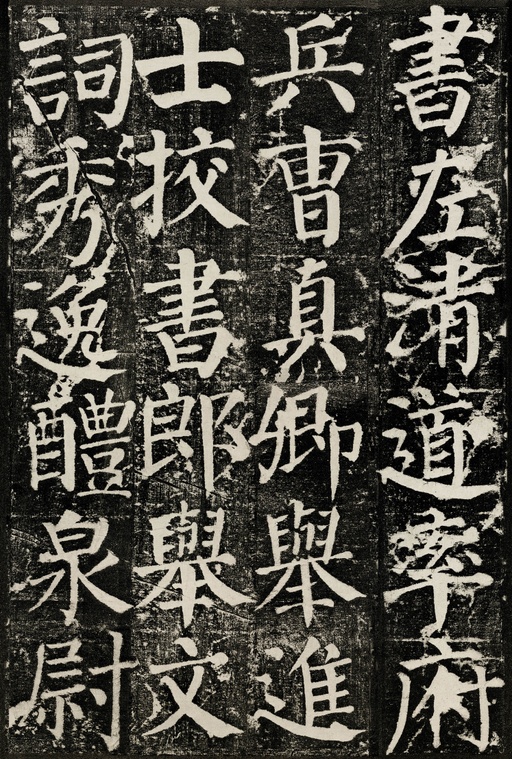 書左清道率府
兵曹真卿舉進
士挍書郎舉文
詞秀逸醴泉尉